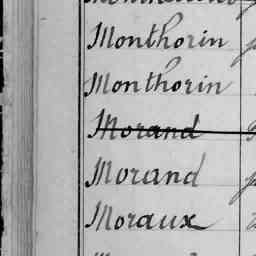 Monthorin
Monthorin
Morand
Morand
Moraux